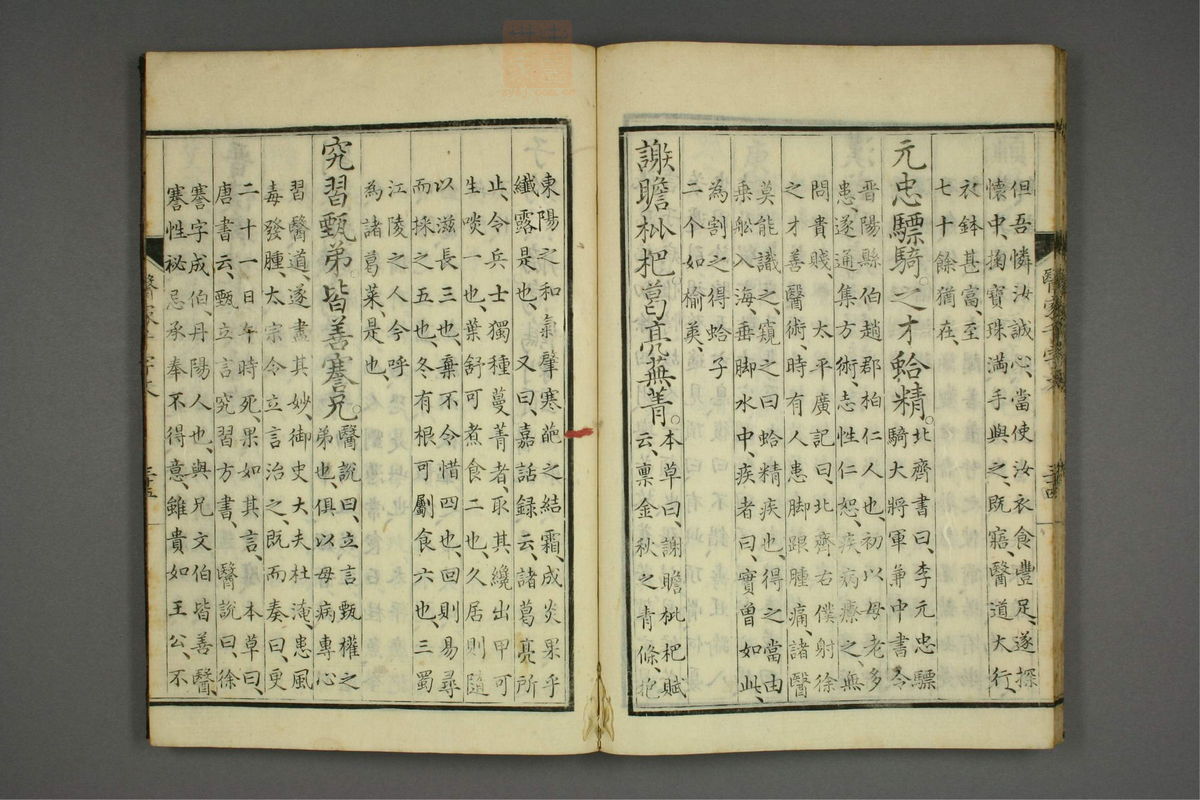 但吾憐汝誠心、當使汝衣食豐足、遂探
懷中、掬寶珠滿手與之、既寤、醫道大行、
衣鉢甚富、至
七十餘猶在、
元忠驃騎。之才蛤精。北齊書曰、李元忠驃
騎大將軍兼中書令
晉陽縣伯趙郡柏仁人也、初以母老多
患遂通集方術、志性仁恕、疾病療之、無
問貴賤、太平廣記曰、北齊右僕射徐
之才善醫術、時有人患脚跟腫痛、諸醫
莫能識之、窺之曰蛤精疾也、得之當由
乘舩入海、垂脚水中、疾者曰、實曾如此、
為割之得蛤子
二个如榆莢、
謝瞻枇杷葛亮蕪菁。本草曰、謝瞻枇杷賦
云、稟金秋之青條、抱
東陽之和氣肇寒葩之結霜、成炎果乎
纖露是也、又曰嘉話録云、諸葛亮所
止、令兵士獨種蔓菁者、取其纔出甲可
生啖一也、葉舒可煮食二也、久居則隨
以滋長三也、棄不令惜四也、回則易尋
而採之五也、冬有根可斸食六也、三蜀
江陵之人今呼
為諸葛菜、是也、
究習甄弟。皆善謇兄。醫說曰、立言甄權之
弟也、俱以母病專心
習醫道、遂盡其妙、御史大夫杜淹患風
毒發腫太宗令立言治之、既而奏曰、更
二十一日午時死、果如其言、本草曰、
唐書云、甄立言究習方書、醫說曰、徐
謇字成伯、丹陽人也、與兄文伯皆善醫、
謇性祕忌承奉不得意、雖貴如王公、不
三十四
三十五